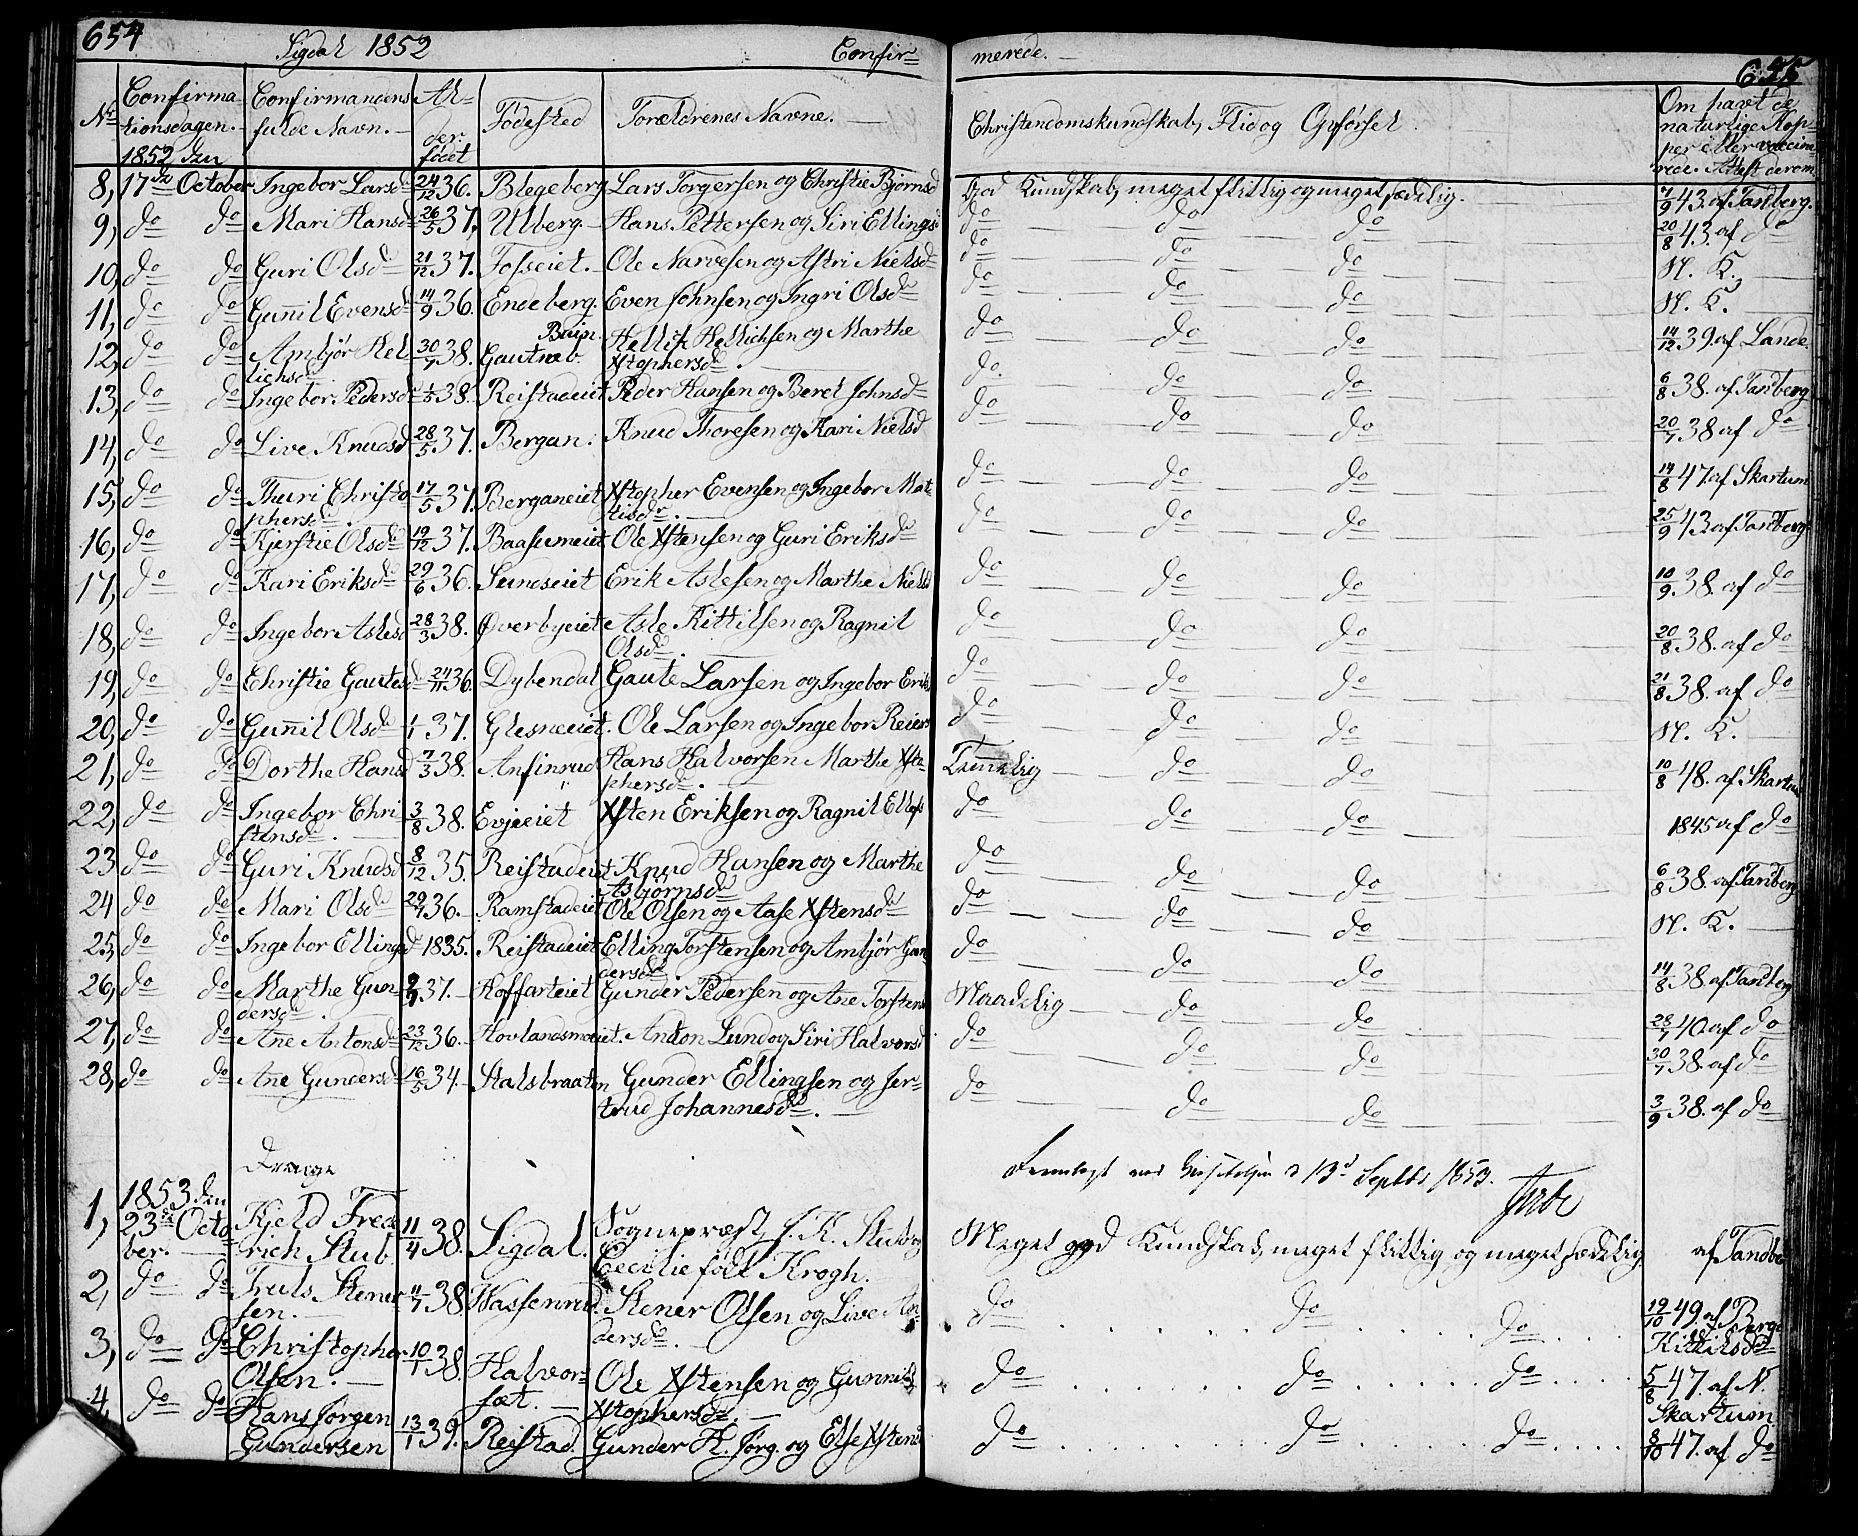 654
Sigdal 1852 Confir=
merede.
655
No Confirma= Confirmandens Al= Fødested Forældrenes Navne. Christendomskundskab, Flid og Opførsel. Om havt de
tionsdagen. fulde Navn. der naturlige Kop=
1852 den født per eller vaccine
rede. Attest derom
8, 17de October Ingebor Larsd 24/12 36. Blegeberg Lars Torgersen og Christie Bjørnsd God Kundskab, meget flittig og meget sædelig. 7/9 43. af Tandberg.
9, do do Mari Hansd 26/5 37. Ulberg. Hans Pettersen og Siri Ellings do do do 20/8 43. af do
10, do do Guri Olsd 21/12 37. Fosseiet. Ole Narvesen og Astri Nielsd do do do N. K.
11, do do Gunnil Evensd 14/9 36. Endeberg. Even Johnsen og Ingri Olsd do do do N. K.
12, do do Ambjør Hel= 30/7 38. Gautneb. Hellik Hellichsen og Marthe do do do 14/12 39. af Lande
lichsd Xstophersd.
13, do do Ingebor Pedersd 1/5 38. Reistadeiet Peder Hansen og Beret Johnsd do do do 6/8 38. af Tandberg
14, do do Live Knudsd 28/5 37. Bergan. Knud Thoresen og Kari Nielsd do do do 20/7 38 af do
15, do do Thuri Christo 17/5 37. Berganeiet Xstopher Evensen og Ingebor Mat do do do 14/8 47. af Skartum
phersd. tisdr.
16, do do Kjerstie Olsd 19/12 37. Baasumeiet Ole Xstensen og Guri Eriksd do do do 25/9 43 af Tandberg
17, do do Kari Eriksd 29/6 36. Sundseiet Erik Aslesen og Marthe Nielsd do do do 10/9 38. af do
18, do do Ingebor Aslesd 28/3 38. Øverbyeiet Asle Kittilsen og Ragnil do do do 20/8 38. af do
Olsd.
19, do do Christie Gautesd 24/11 36. Dybendal Gaute Larsen og Ingebor Eriks do do do 21/8 38. af do
20, do do Gunnil Olsd 1/1 37. Glesneeiet. Ole Larsen og Ingebor Reiers do do do N. K.
21, do do Dorthe Hansd 7/3 38. Anfinrud Hans Halvorsen Marthe Xsto Temmelig do do 10/8 48. af Skartum
phersd.
22, do do Ingebor Chri 3/8 38. Evjeeiet Xsten Eriksen og Ragnil Ellefs do do do 1845 af do
stensd.
23 do do Guri Knudsd 8/12 35. Reistadeiet Knud Hansen og Marthe do do do 6/8 38. af Tandberg
Asbjørnsd
24 do do Mari Olsd 29/7 36. Ramstadeiet Ole Olsen og Aase Xstensd do do do N. K.
25, do do Ingebor Ellingsd 1835. Reistadeiet Elling Torstensen og Ambjør Gun do do do 14/8 38. af Tandberg
dersd
26, do do Marthe Gun= 37. Hoffarteiet Gunder Pedersen og Ane Torstens Maadelig do do 28/7 40. af do
dersd.
27, do do Ane Antonsd 23/12 36. Hovlandsmoeiet. Anton Lund og Siri Halvorsd do do do 30/7 38. af do
28, do do Ane Gundersd 16/5 34. Stalsbraaten Gunder Ellingsen og Jer= do do do 3/9 38. af do
trud Johannesd.
Drenge
Fremlagt ved Visitatsen d 13d Septbr 1853.
1, 1853 den
23de Octo= Kjeld Fred 11/4 38. Sigdal. Sognepræst J. K. Stub og Meget god Kundskab, meget flittig og meget sædelig. af Tandb
ber. rich Stub. Cecilie født Krogh.
2, do do Truls Stener 11/7 38 Hassenrud. Stener Olsen og Live An do do do 19/10 49. af Berge
sen. dersd. Kittilsd
3, do do Christopher 10/1 38. Halvor= Ole Xstensen og Gunnil do do do 5/8 47. af N.
Olsen. sæt. Xstophersd. Skartum
4, do do Hans Jørgen 13/1 39. Reistad. Gunder H. Jørg. og Else Xstensd do do do 8/10 47. af do
Gundersen